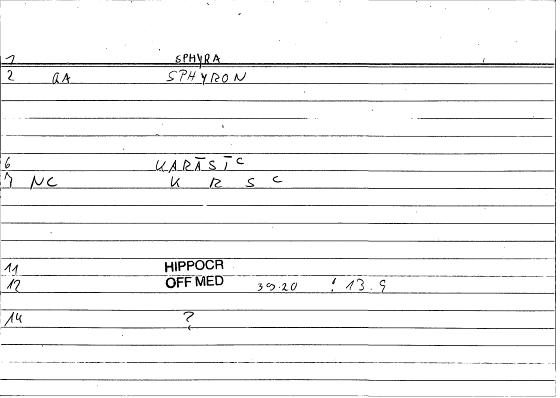 1 SPHYRA
2 AA SPHYRON
6 KARĀSĪC
7 NC K R S C
11 HIPPOCR
12 OFF MED 39.20 : 13.9
14 ?